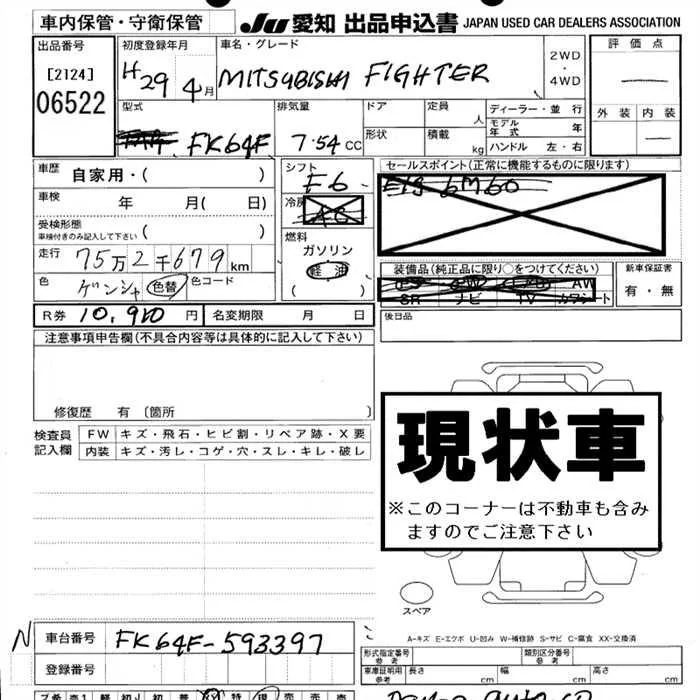 車内保管・守衛保管
JU 愛知 出品申込書 JAPAN USED CAR DEALERS ASSOCIATION
出品番号
[2124]
06522
初度登録年月
H29 4月
車名・グレード
MITSUBISHI FIGHTER
2WD
・
4WD
評価点
外装 内装
型式
FK64F
排気量
7.54 CC
ドア
形状
定員 人
積載 kg
ディーラー・並 行
モデル年式 年
ハンドル 左・右
車歴
自家用・( )
車検 年 月( 日)
受検形態
車検付きのみ記入して下さい ( )
走行 75万2千679 km
色 ゲンシャ 色替 色コード
シフト
F6
冷房
AC
燃料
ガソリン
軽油
( )
セールスポイント(正常に機能するものに限ります)
6M60
装備品(純正品に限り○をつけてください)
AW
SR ナビ TV カワシート
新車保証書
有・無
R券 10,910 円
名変期限 月 日
後日品
注意事項申告欄(不具合内容等は具体的に記入して下さい)
修復歴 有 〔箇所 〕
検査員
記入欄
FW キズ・飛石・ヒビ割・リペア跡・X要
内装 キズ・汚レ・コゲ・穴・スレ・キレ・破レ
現状車
※このコーナーは不動車も含み
ますのでご注意下さい
スペア
A-キズ E-エクボ U-凹み W-補修跡 S-サビ C-腐食 XX-交換済
N 車台番号 FK64F-593397
登録番号
形式指定番号
参考
類別区分番号
参考
車庫証明用
参考
長さ cm 幅 cm 高さ cm